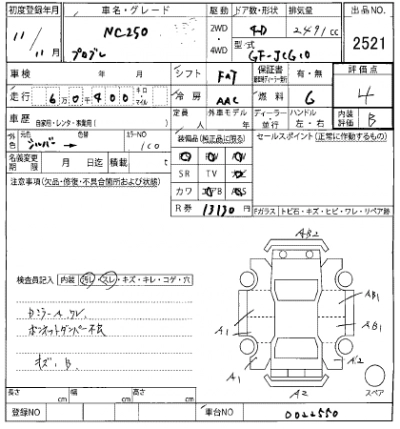 初度登録年月 車名・グレード 駆動 ドア数・形状 排気量 出品NO.
11/11月 NC250 プログレ 2WD・4WD 4D 2491cc 2521
型式 GF-JCG10
車検 年 月 シフト FAT 保証書 有・無 評価点
走行 6万0千400 キロ・マイル 冷房 AAC 燃料 G 4
車歴 自家用・レンタ・事業用( ) 定員 人 外車モデル 年 ディーラー・並行 ハンドル 左・右 内装評価 B
外色 元色 シルバー 色替 カラーNO 1C0 装備品(純正品に限る) セールスポイント(正常に作動するもの)
名義変更期限 月 日迄 積載 t SR TV
注意事項(欠品・修復・不具合箇所および状態) カワ エアB
R券 13130円 Fガラス トビ石・キズ・ヒビ・ワレ・リペア跡
AB2
検査員記入 内装 汚れ・スレ・キズ・キレ・コゲ・穴
AB1
AB1
A1
ボンネットダンパー不良
キズ・B
A1
A2
A2
スペア
長さ cm 幅 cm 高さ cm
登録NO 車台NO 0022550